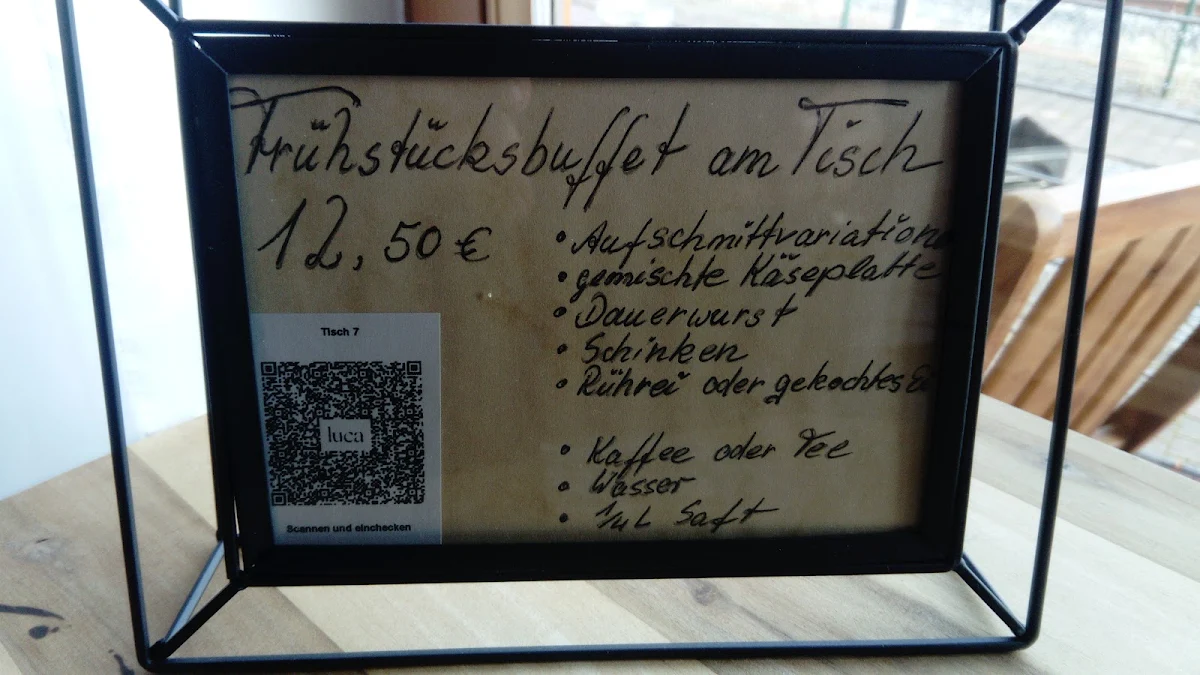 Frühstücksbuffet am Tisch
12,50 €
• Aufschnittvariation
• gemischte Käseplatte
• Dauerwurst
• Schinken
• Rührei oder gekochtes Ei
• Kaffee oder Tee
• Wasser
• 1/4 L Saft
Tisch 7
luca
Scannen und einchecken